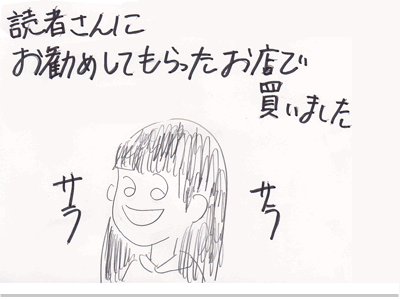 読者さんに
お勧めしてもらったお店で
買いました
サラ
サラ